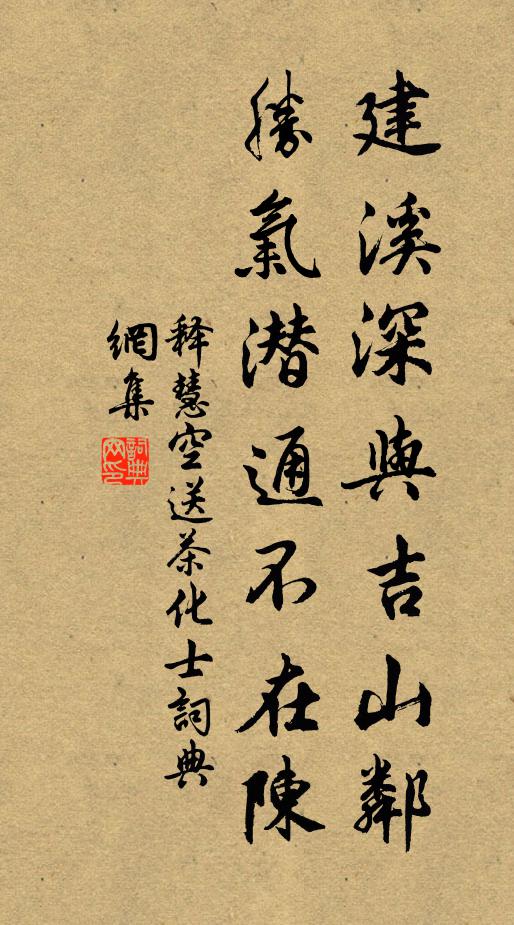 建溪深與吉山鄰
勝氣潜通不在陳
釋慧空送茶化士詞典
網集
詞典
网印